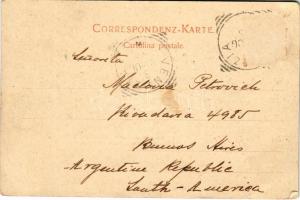 CORRESPONDENZ-KARTE
Cartolina postale.
Maclovia Petrovich
Rivadavia 4985
Buenos Aires
Argentine Republic
South-America